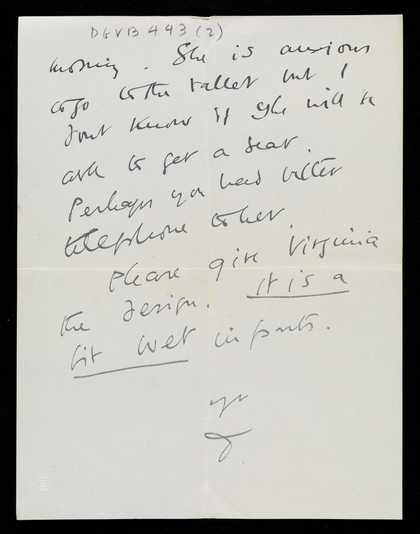 DGVB 443 (2)
morning. She is anxious
to go to the ballet but I
dont know if she will be
able to get a seat.
Perhaps you had better
telephone to her
Please give Virginia
the design. it is a
bit wet in parts.
yr
D